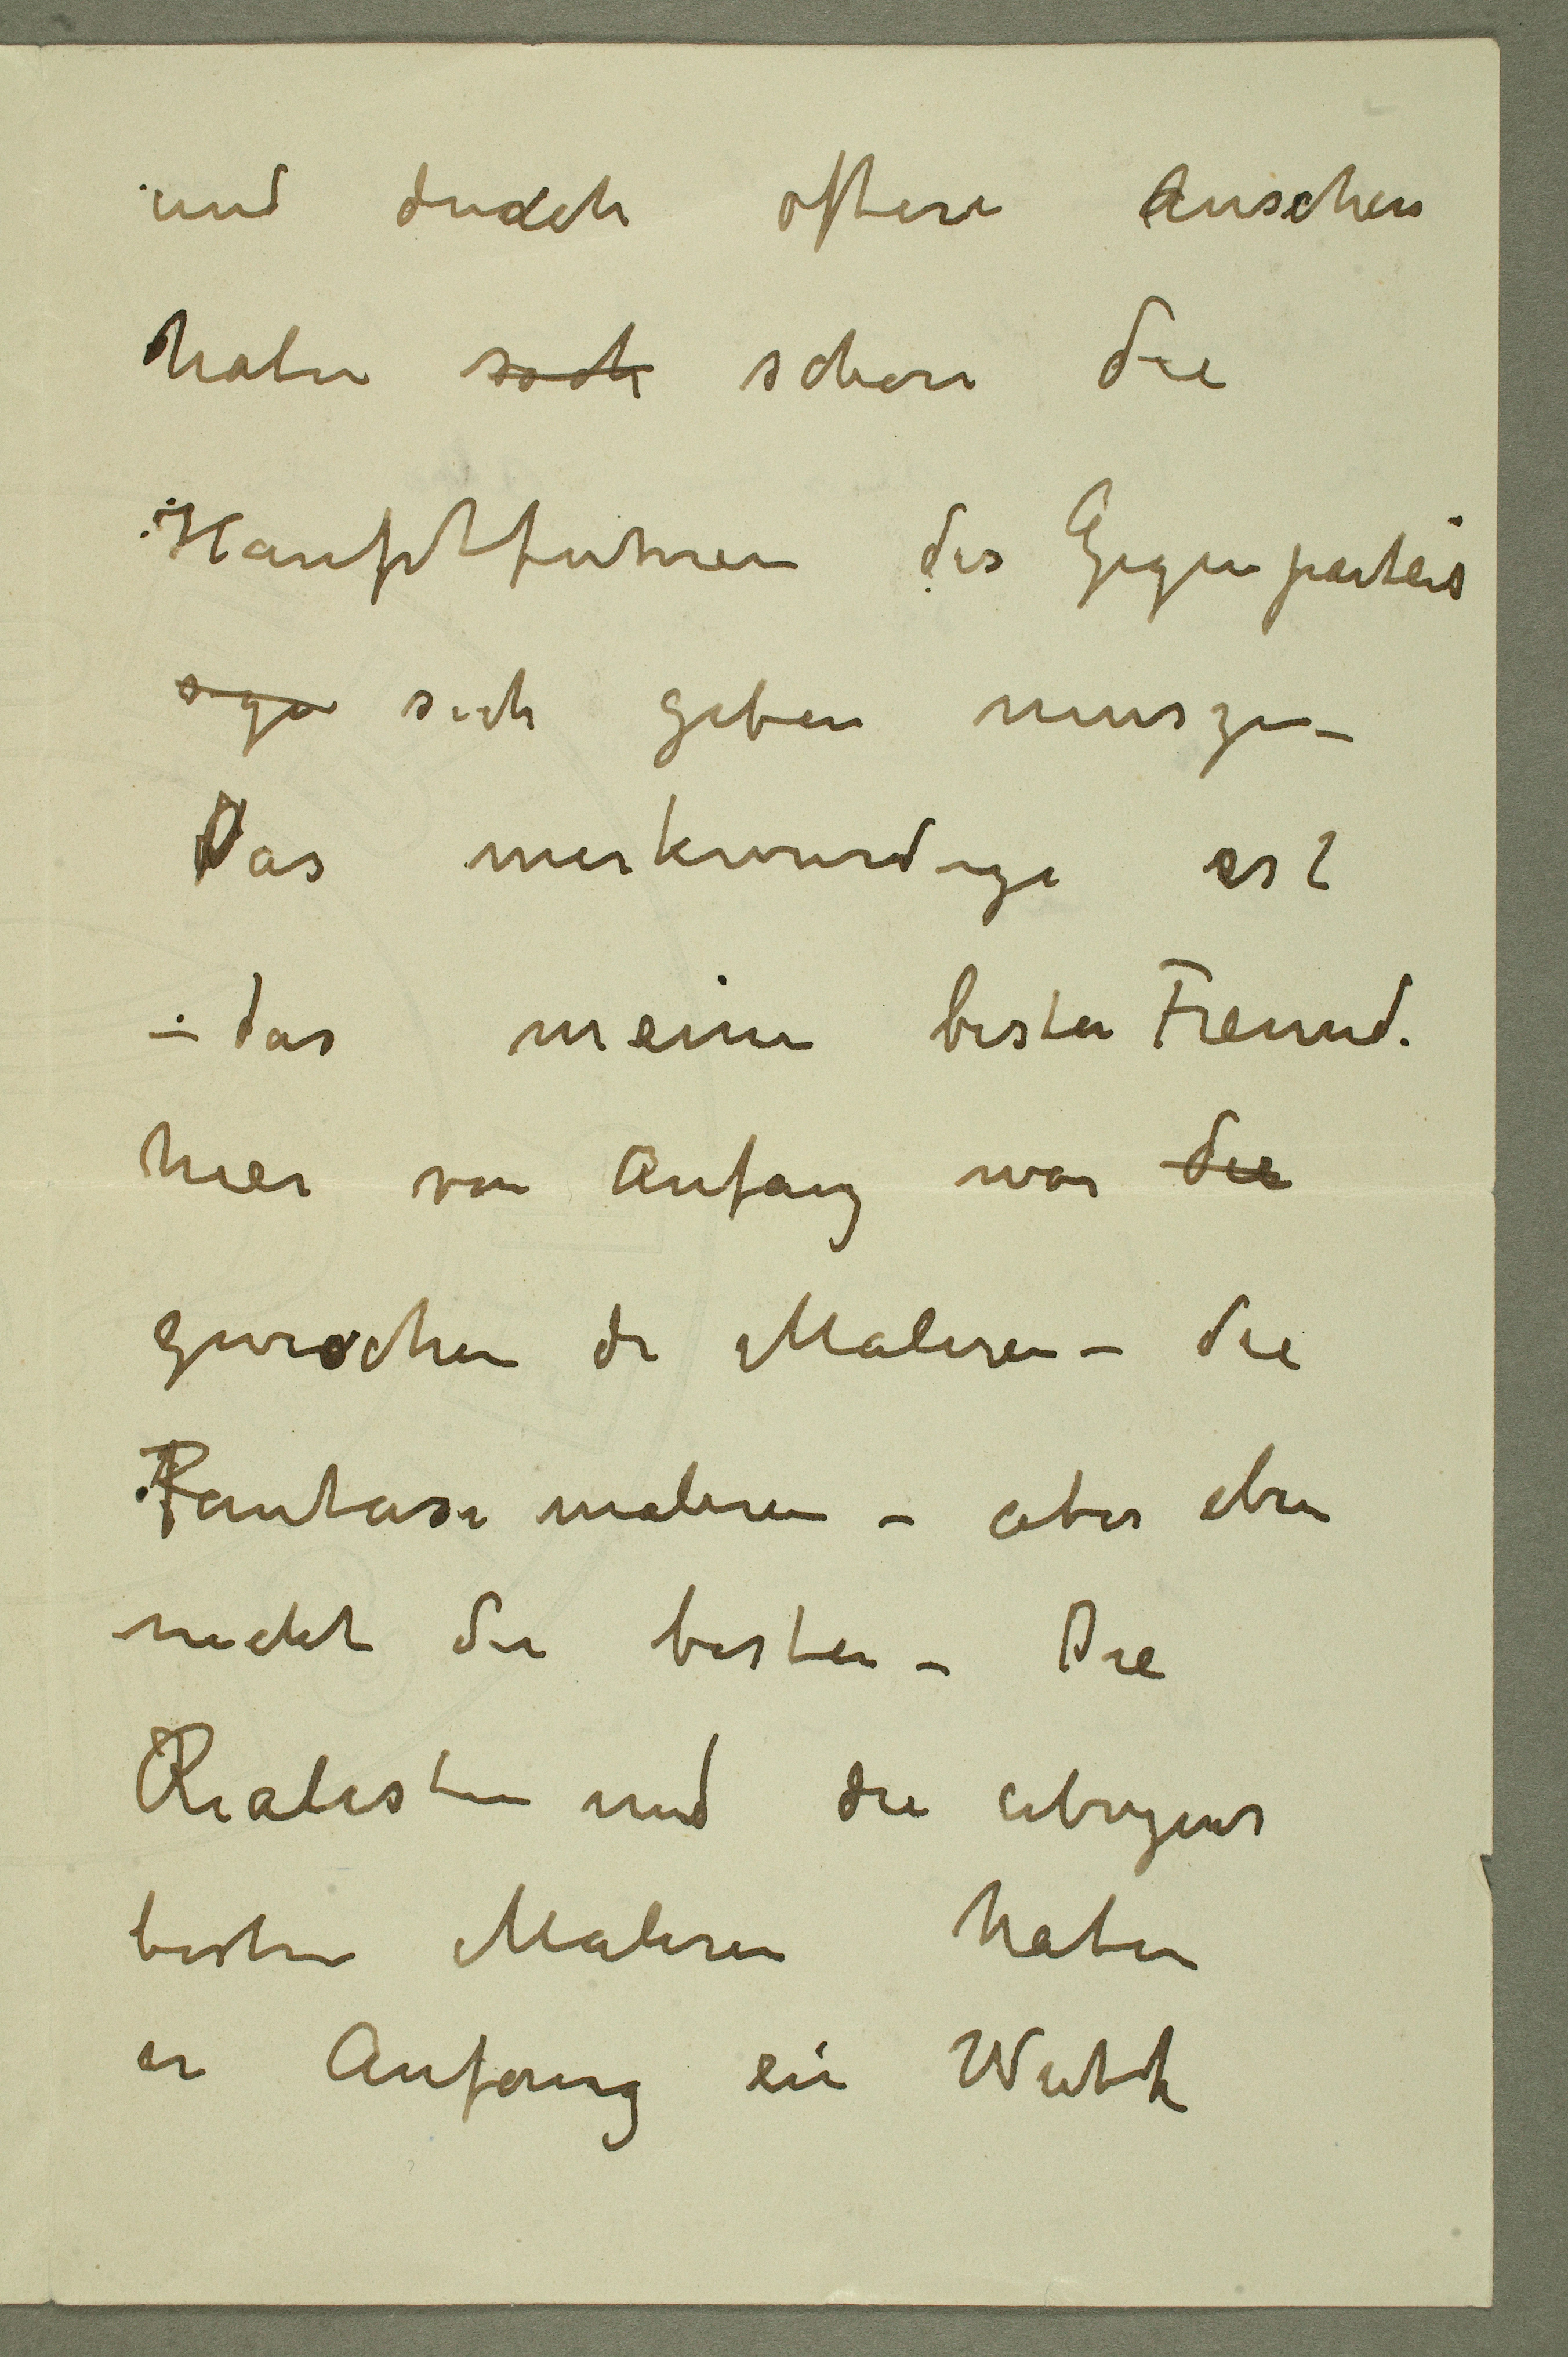 und durch oftere Ansehen
haben sich schon die
Hauptfuhrer des Gegenparteis
sich geben muszen –
Das merkwurdige ist
– das meine besten Freund.
hier von Anfang war die
zwischen de Maleren – die
Fantasi maleren – aber eben
nicht die besten – Die
Realisten und die ubrigens
besten Maleren haben
in Anfang ein